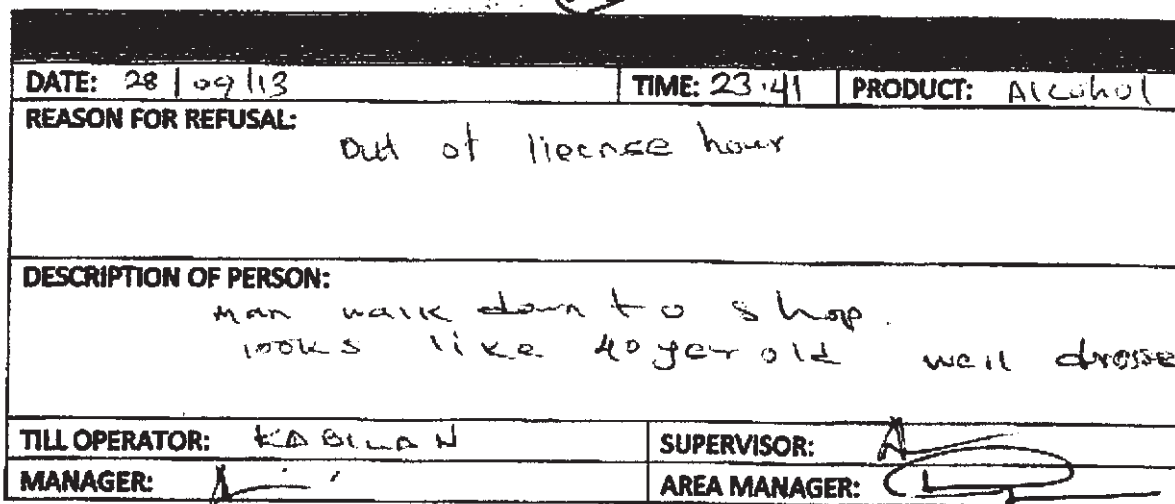 DATE: 28/09/13 TIME: 23.41 PRODUCT: Alcohol
REASON FOR REFUSAL:
Out of license hour
DESCRIPTION OF PERSON:
Man walk down to shop.
looks like 40 yer old well dresse
TILL OPERATOR: KABILAN SUPERVISOR:
MANAGER: AREA MANAGER: